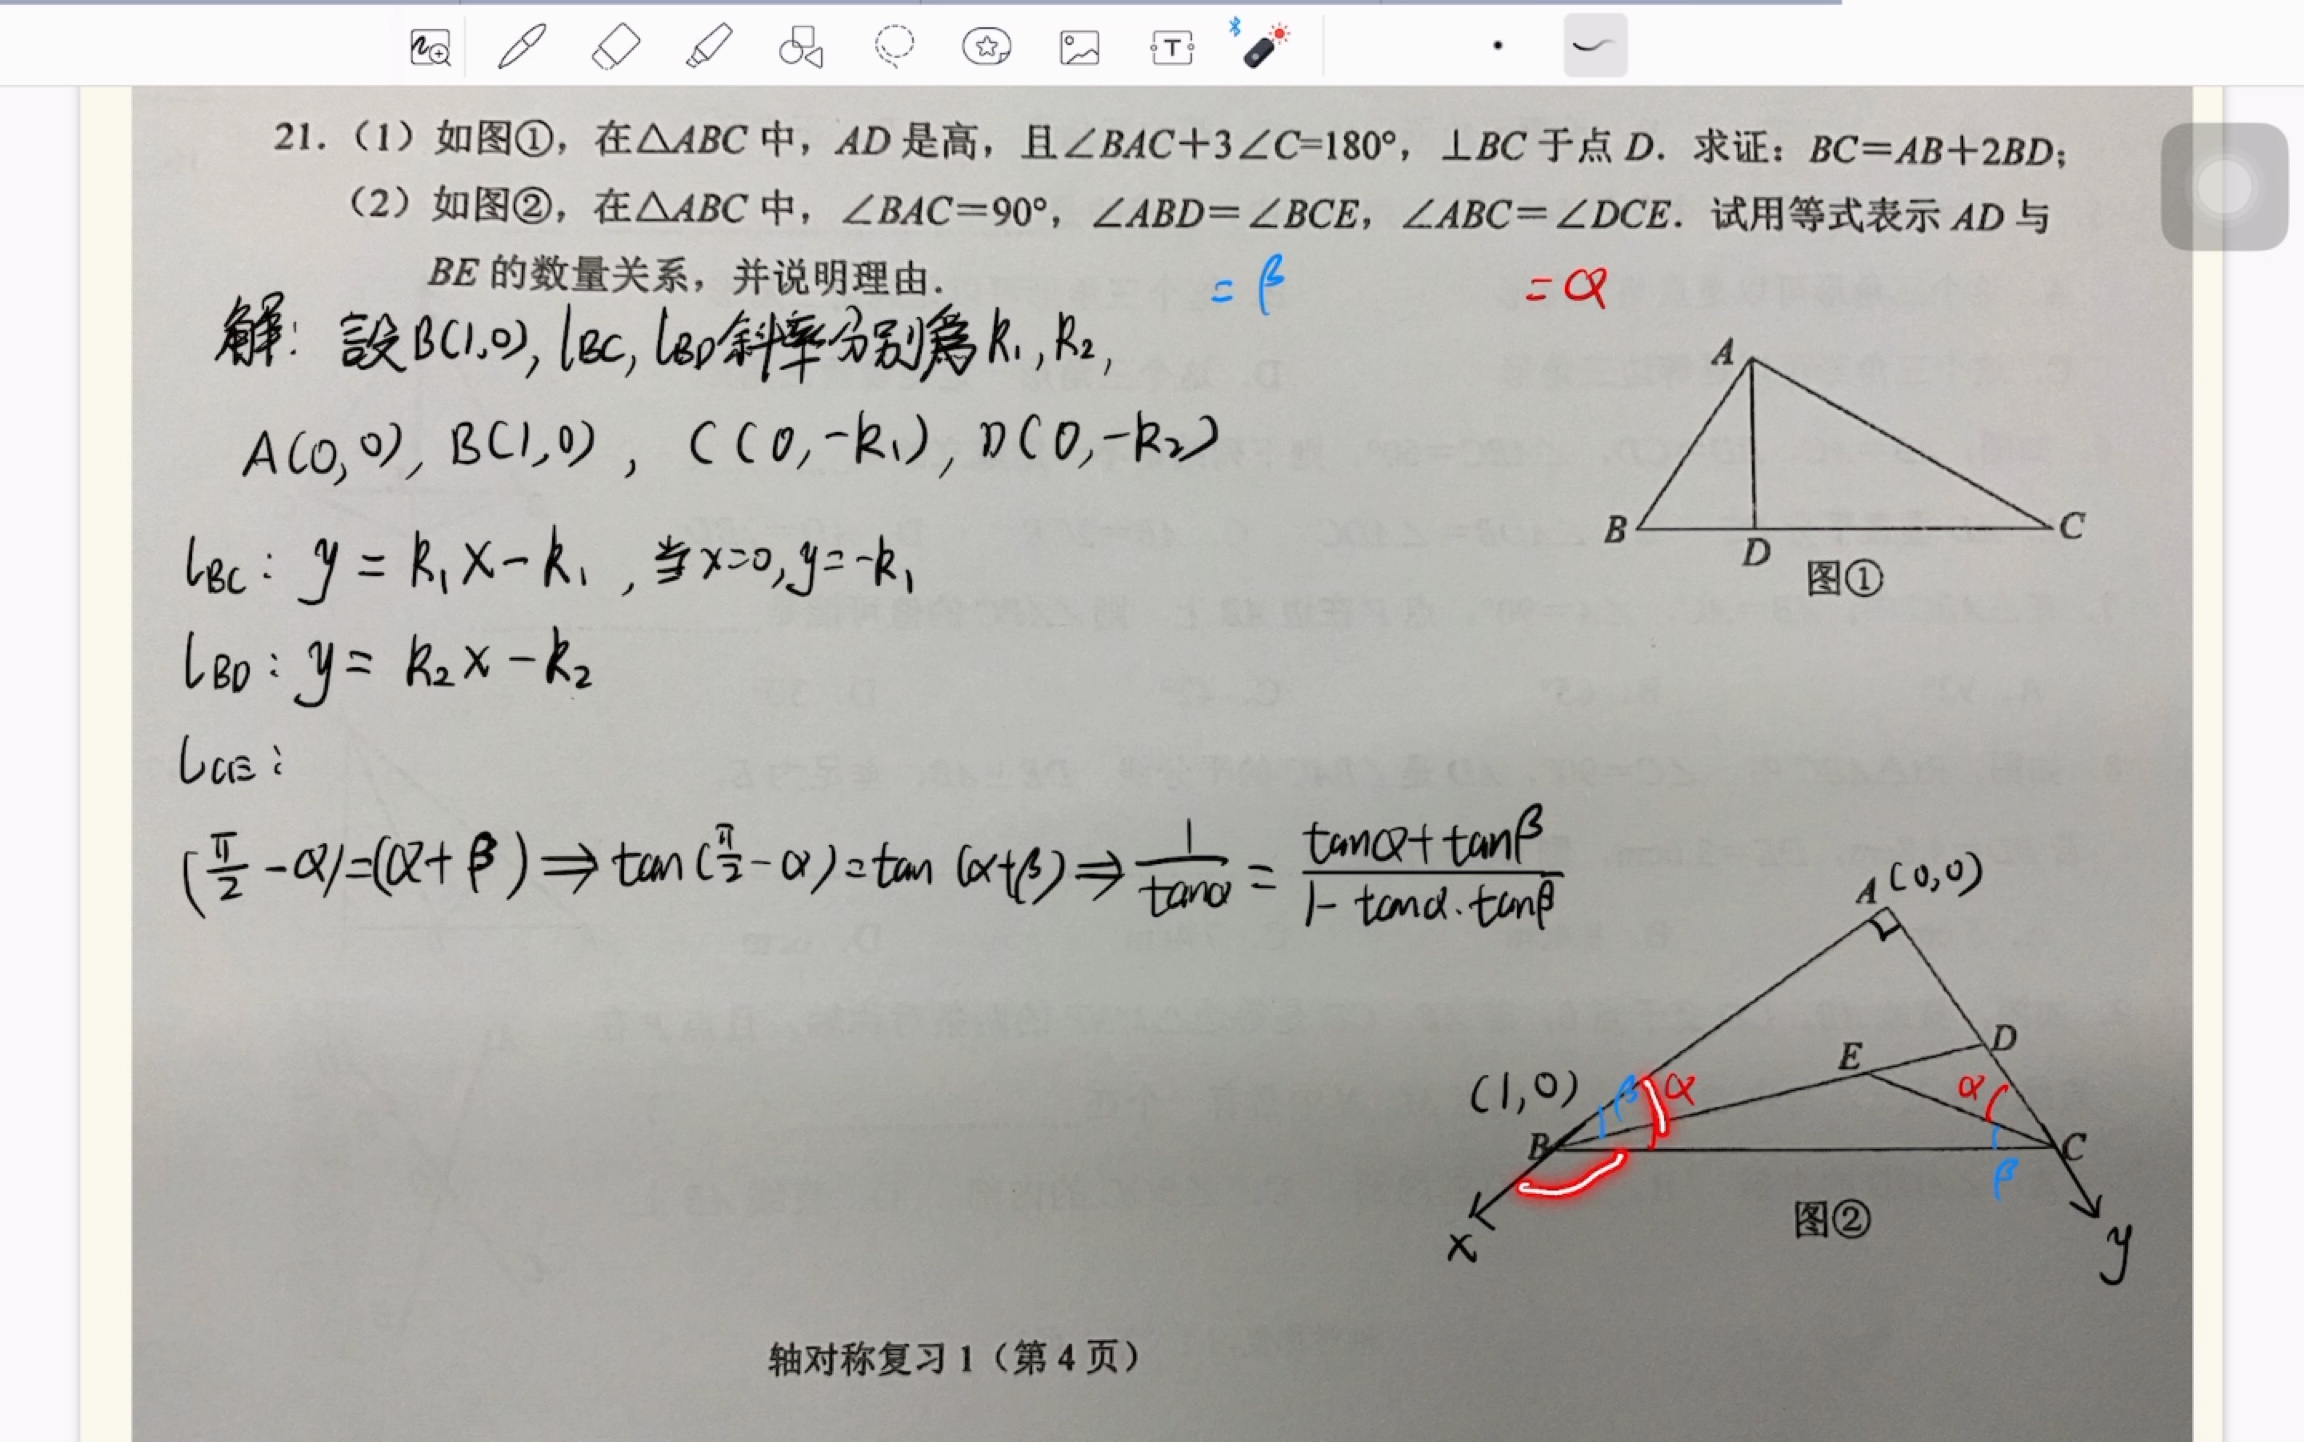 21.（1）如图①，在△ABC 中，AD 是高，且∠BAC+3∠C=180°，⊥BC 于点 D．求证：BC=AB+2BD；
（2）如图②，在△ABC 中，∠BAC=90°，∠ABD=∠BCE，∠ABC=∠DCE．试用等式表示 AD 与
BE 的数量关系，并说明理由．
=β
=α
解：設B(1,0), lBC, lBD斜率分别為k₁, k₂,
A(0,0), B(1,0), C(0,-k₁), D(0,-k₂)
lBC: y=k₁x-k₁, 当x=0, y=-k₁
lBD: y=k₂x-k₂
lCE:
(π/2-α)=(α+β)⟹tan(π/2-α)=tan(α+β)⟹1/tanα=(tanα+tanβ)/(1-tanα·tanβ)
A
B
D
C
图①
A(0,0)
E
D
(1,0)
β
α
α
B
C
β
x
图②
y
轴对称复习 1（第 4 页）
T